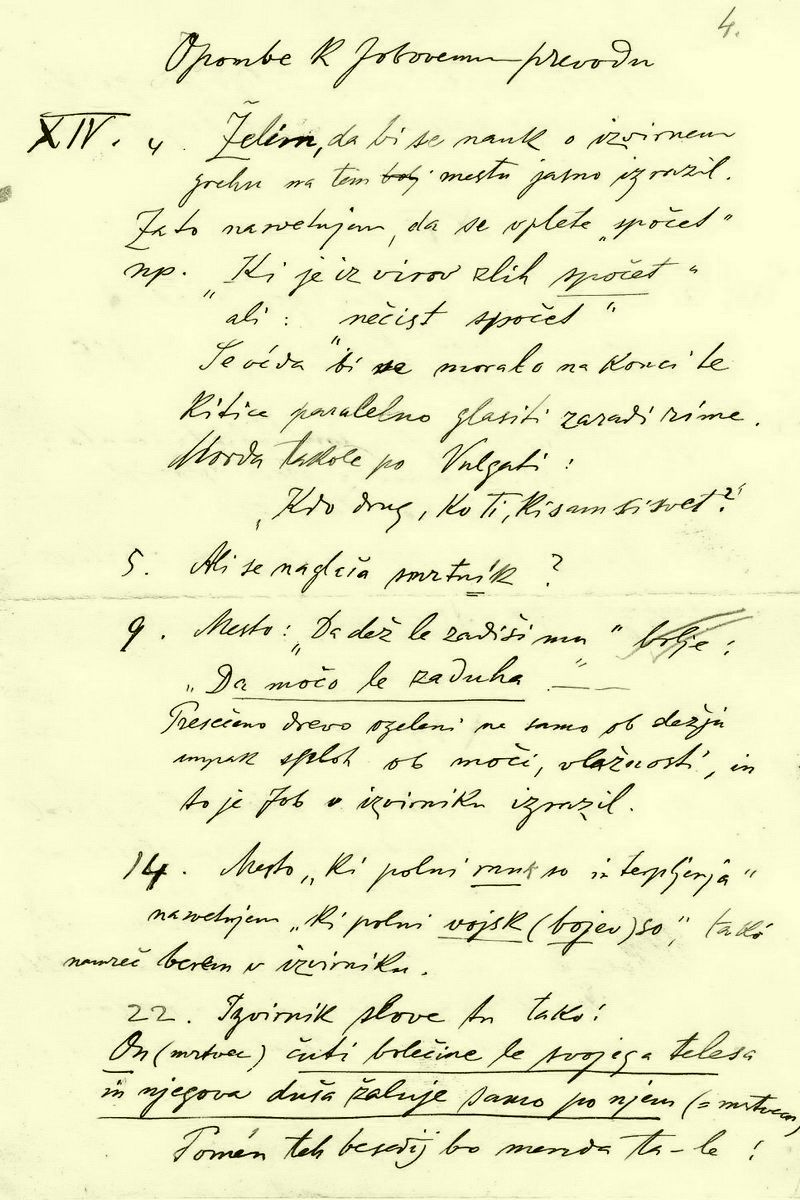 4.
Opombe k Jobovemu prevodu
XIV. 4. Želim, da bi se nauk o izvirnem
grehu na tem bolj mestu jasno izrazil.
Zato nasvetujem, da se vplete „spočet"
np. „Ki je iz virov zlih spočet"
ali: „nečist spočet"
Seveda bi se moralo na konci te
kitice paralelno glasiti zaradi rime.
Morda takole po Vulgati:
„Kdo drug, ko Ti, ki sam si svet?"
5. Ali se naglaša smrtník?
9. Mesto: „Da dež le zadiši mu" bolje:
„Da močo le zaduha —"—
drevo ozeleni ne samo ob dežju
ampak sploh ob moči, vlažnosti, in
to je Job v izvirniku izrazil.
14. Mesto „ki polni so in terpljenja"
nasvetujem „ki polni vojsk (bojev) so", tako
namreč berem v izvirniku.
22. Izvirnik slove tu tako:
On (mrtvec) čuti bolečine le svojega telesa
in njegova duša žaluje samo po njem (= mrtvecu)
Pomén teh besedij bo menda ta-le: